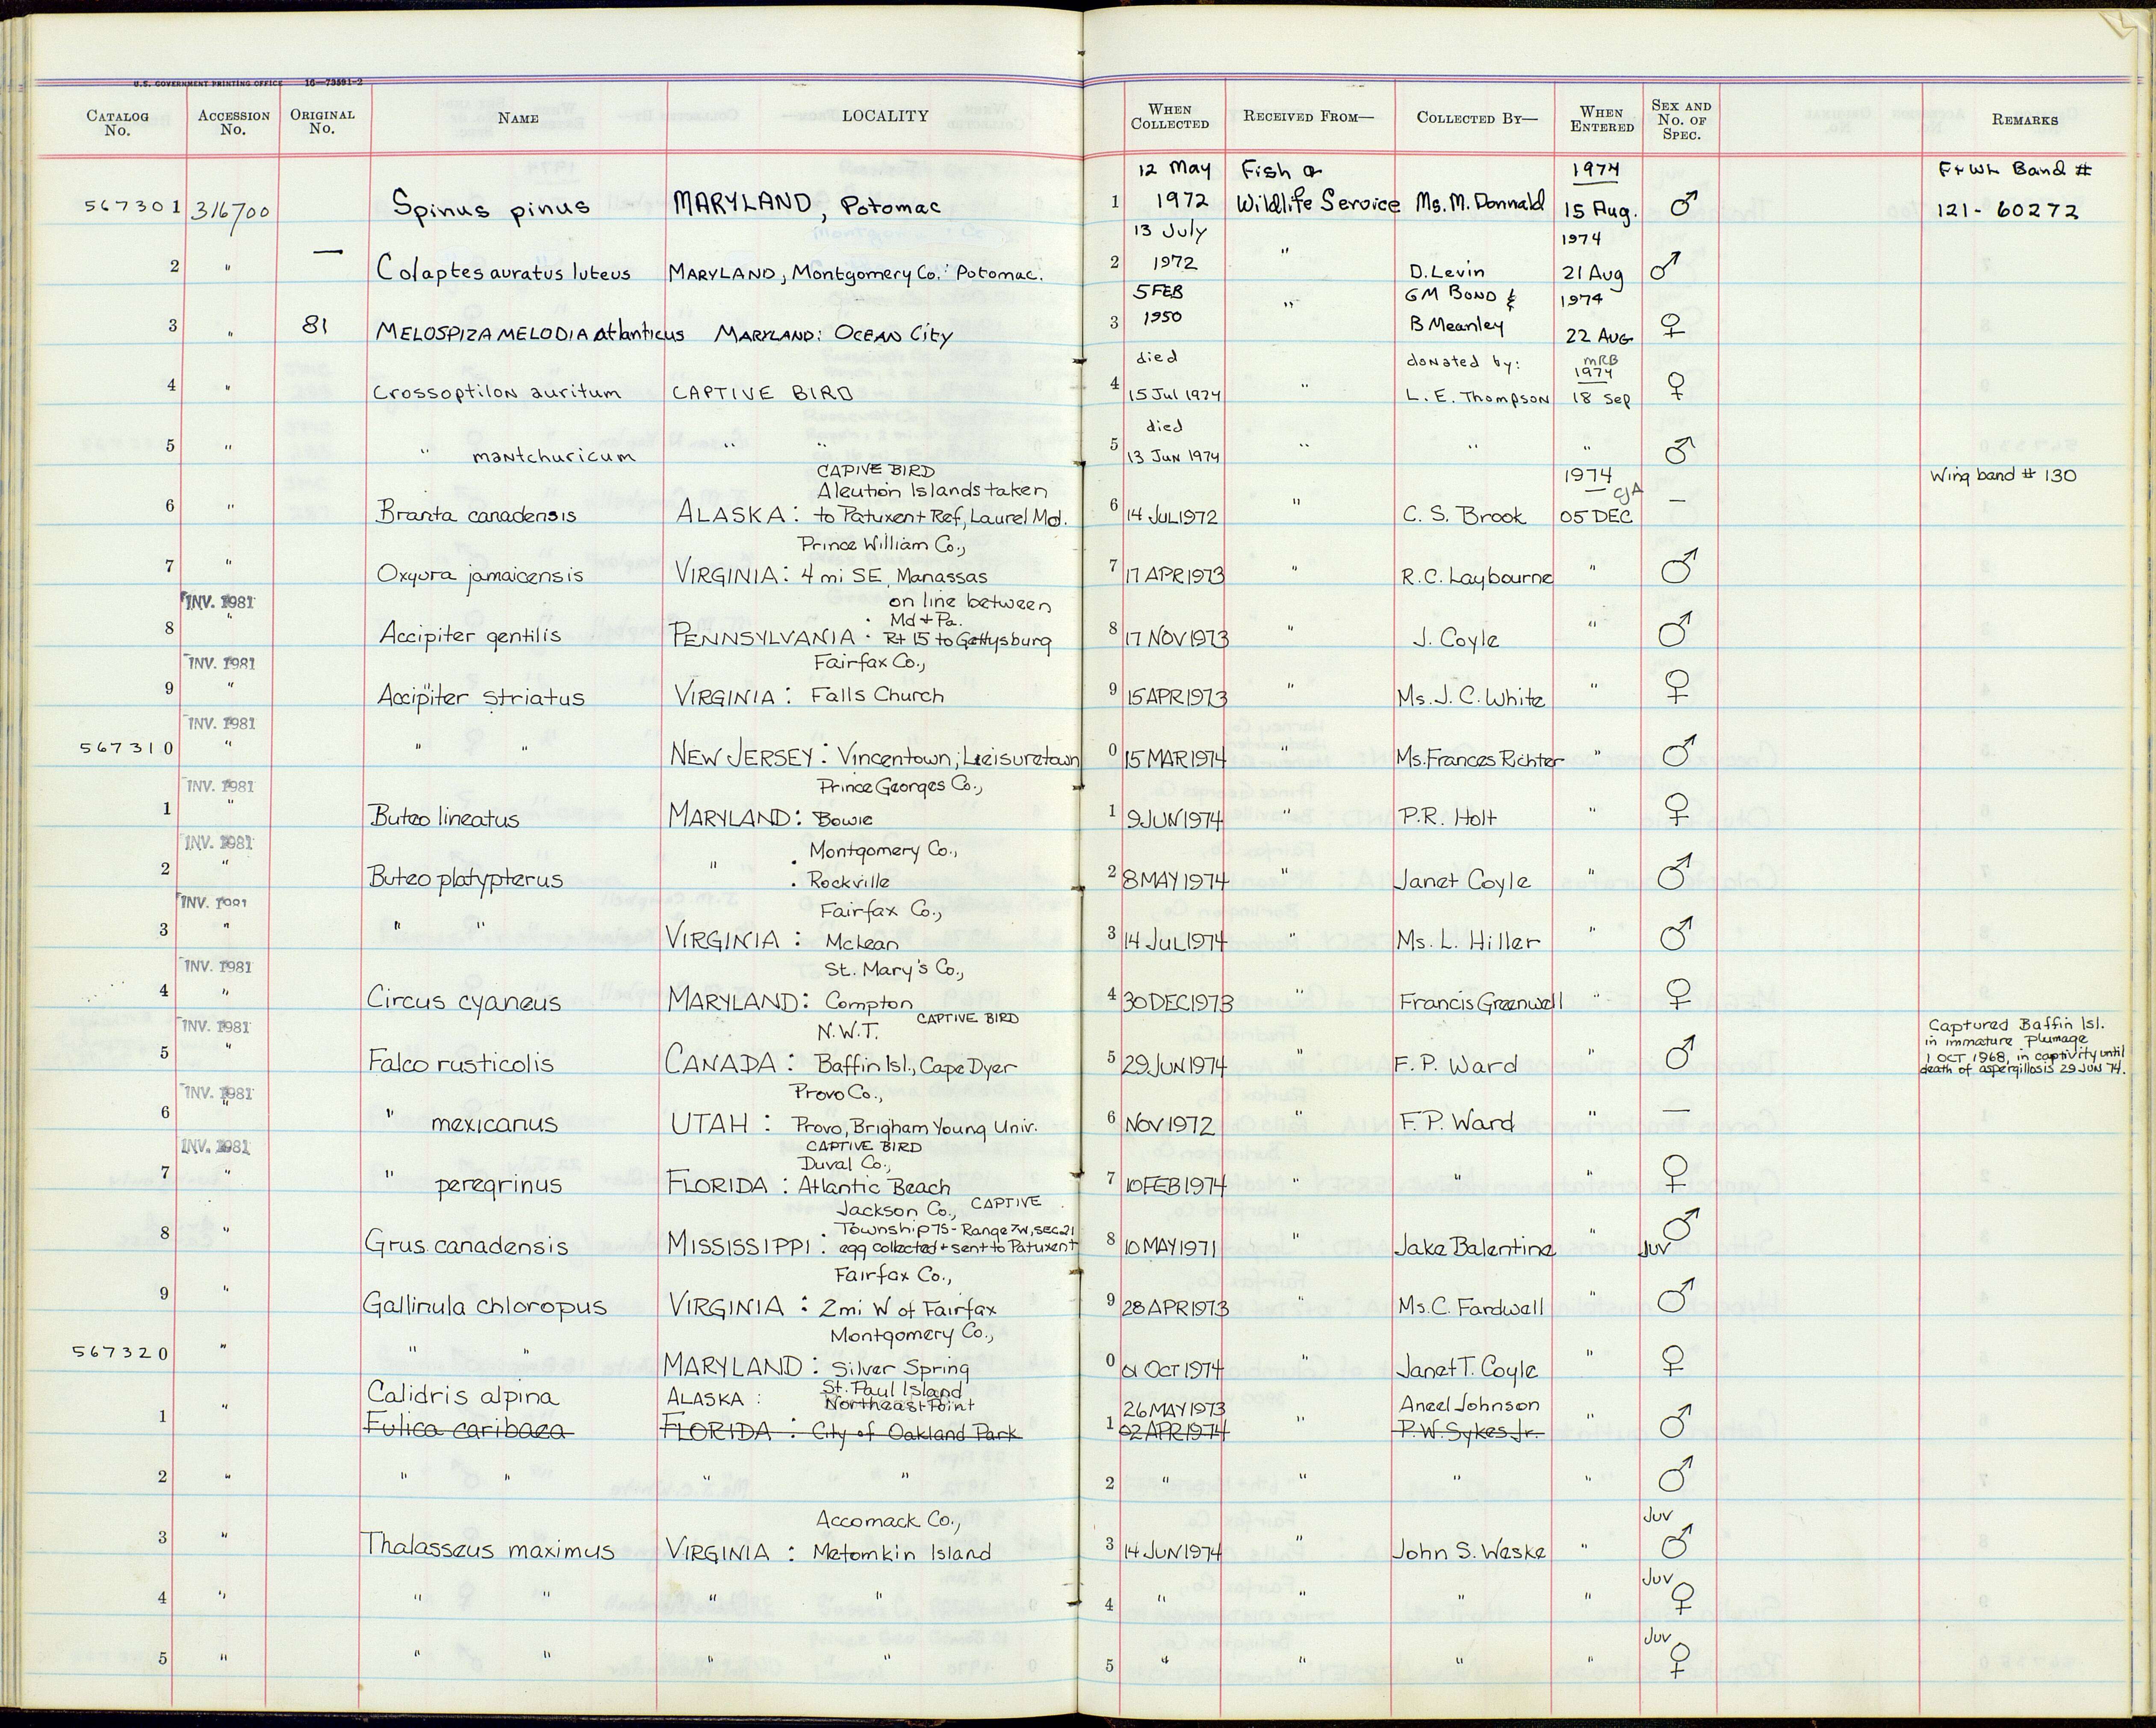 U.S. GOVERNMENT PRINTING OFFICE 16—73591-2
CATALOG No. ACCESSION No. ORIGINAL No. NAME LOCALITY WHEN COLLECTED RECEIVED FROM— COLLECTED BY— WHEN ENTERED SEX AND No. OF SPEC. REMARKS
12 May Fish & 1974 F&WL Band #
567301 316700 Spinus pinus MARYLAND, Potomac 1 1972 Wildlife Service Ms. M. Donnald 15 Aug. ♂ 121-60272
13 July 1974
2 " — Colaptes auratus luteus MARYLAND, Montgomery Co.: Potomac. 2 1972 " D. Levin 21 Aug ♂
5 FEB GM BOND & 1974
3 " 81 MELOSPIZA MELODIA atlanticus MARYLAND: OCEAN City 3 1950 " B Meanley 22 AUG ♀
died donated by: MRB 1974
4 " Crossoptilon auritum CAPTIVE BIRD 4 15 Jul 1974 " L. E. Thompson 18 Sep ♀
died
5 " " mantchuricum " " 5 13 Jun 1974 " " " ♂
CAPIVE BIRD 1974 Wing band # 130
Aleution Islands taken CJA
6 " Branta canadensis ALASKA: to Patuxent Ref, Laurel Md. 6 14 JUL 1972 " C. S. Brook 05 DEC —
Prince William Co.,
7 " Oxyura jamaicensis VIRGINIA: 4 mi SE, Manassas 7 17 APR 1973 " R. C. Laybourne " ♂
INV. 1981 on line between
Md + Pa.
8 " Accipiter gentilis PENNSYLVANIA: Rt 15 to Gettysburg 8 17 NOV 1973 " J. Coyle " ♂
INV. 1981 Fairfax Co.,
9 " Accipiter striatus VIRGINIA: Falls Church 9 15 APR 1973 " Ms. J. C. White " ♀
INV. 1981
567310 " " " NEW JERSEY: Vincentown; Leisuretown 0 15 MAR 1974 " Ms. Frances Richter " ♂
INV. 1981 Prince Georges Co.,
1 " Buteo lineatus MARYLAND: Bowie 1 9 JUN 1974 " P.R. Holt " ♀
INV. 1981 Montgomery Co.,
2 " Buteo platypterus " : Rockville 2 8 MAY 1974 " Janet Coyle " ♂
INV. 1981 Fairfax Co.,
3 " " " VIRGINIA: McLean 3 14 JUL 1974 " Ms. L. Hiller " ♂
INV. 1981 St. Mary's Co.,
4 " Circus cyaneus MARYLAND: Compton 4 30 DEC 1973 " Francis Greenwell " ♀
INV. 1981 N.W.T. CAPTIVE BIRD Captured Baffin Isl.
in immature plumage
5 " Falco rusticolis CANADA: Baffin Isl., Cape Dyer 5 29 JUN 1974 " F. P. Ward " ♂ 1 OCT 1968, in captivity until
death of aspergillosis 29 JUN 74.
INV. 1981 Provo Co.,
6 " " mexicanus UTAH: Provo, Brigham Young Univ. 6 NOV 1972 " F. P. Ward " —
INV. 1981 CAPTIVE BIRD
Duval Co.,
7 " " peregrinus FLORIDA: Atlantic Beach 7 10 FEB 1974 " " " ♀
Jackson Co., CAPTIVE
Township 7S - Range 7W, SEC. 21
8 " Grus canadensis MISSISSIPPI: egg collected + sent to Patuxent 8 10 MAY 1971 " Jake Balentine " Juv ♂
Fairfax Co.,
9 " Gallinula chloropus VIRGINIA: 2 mi W of Fairfax 9 28 APR 1973 " Ms. C. Fardwell " ♂
Montgomery Co.,
567320 " " " MARYLAND: Silver Spring 0 01 OCT 1974 " Janet T. Coyle " ♀
Calidris alpina ALASKA: St. Paul Island Northeast Point 26 MAY 1973 Ancel Johnson
1 " Fulica caribaea FLORIDA: City of Oakland Park 1 02 APR 1974 " P. W. Sykes Jr. " ♂
2 " " " " " 2 " " " " ♂
Accomack Co., Juv
3 " Thalasseus maximus VIRGINIA: Metomkin Island 3 14 JUN 1974 " John S. Weske " ♂
Juv
4 " " " " " 4 " " " " ♀
Juv
5 " " " " " 5 " " " " ♀